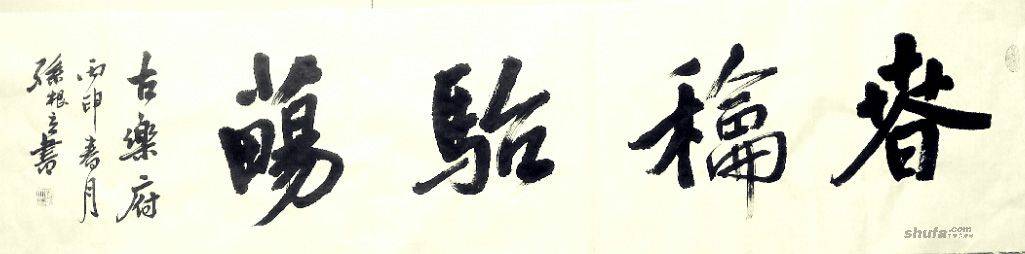 春龢駘蕩
古樂府
丙申春月
孫根立書
shufa.com